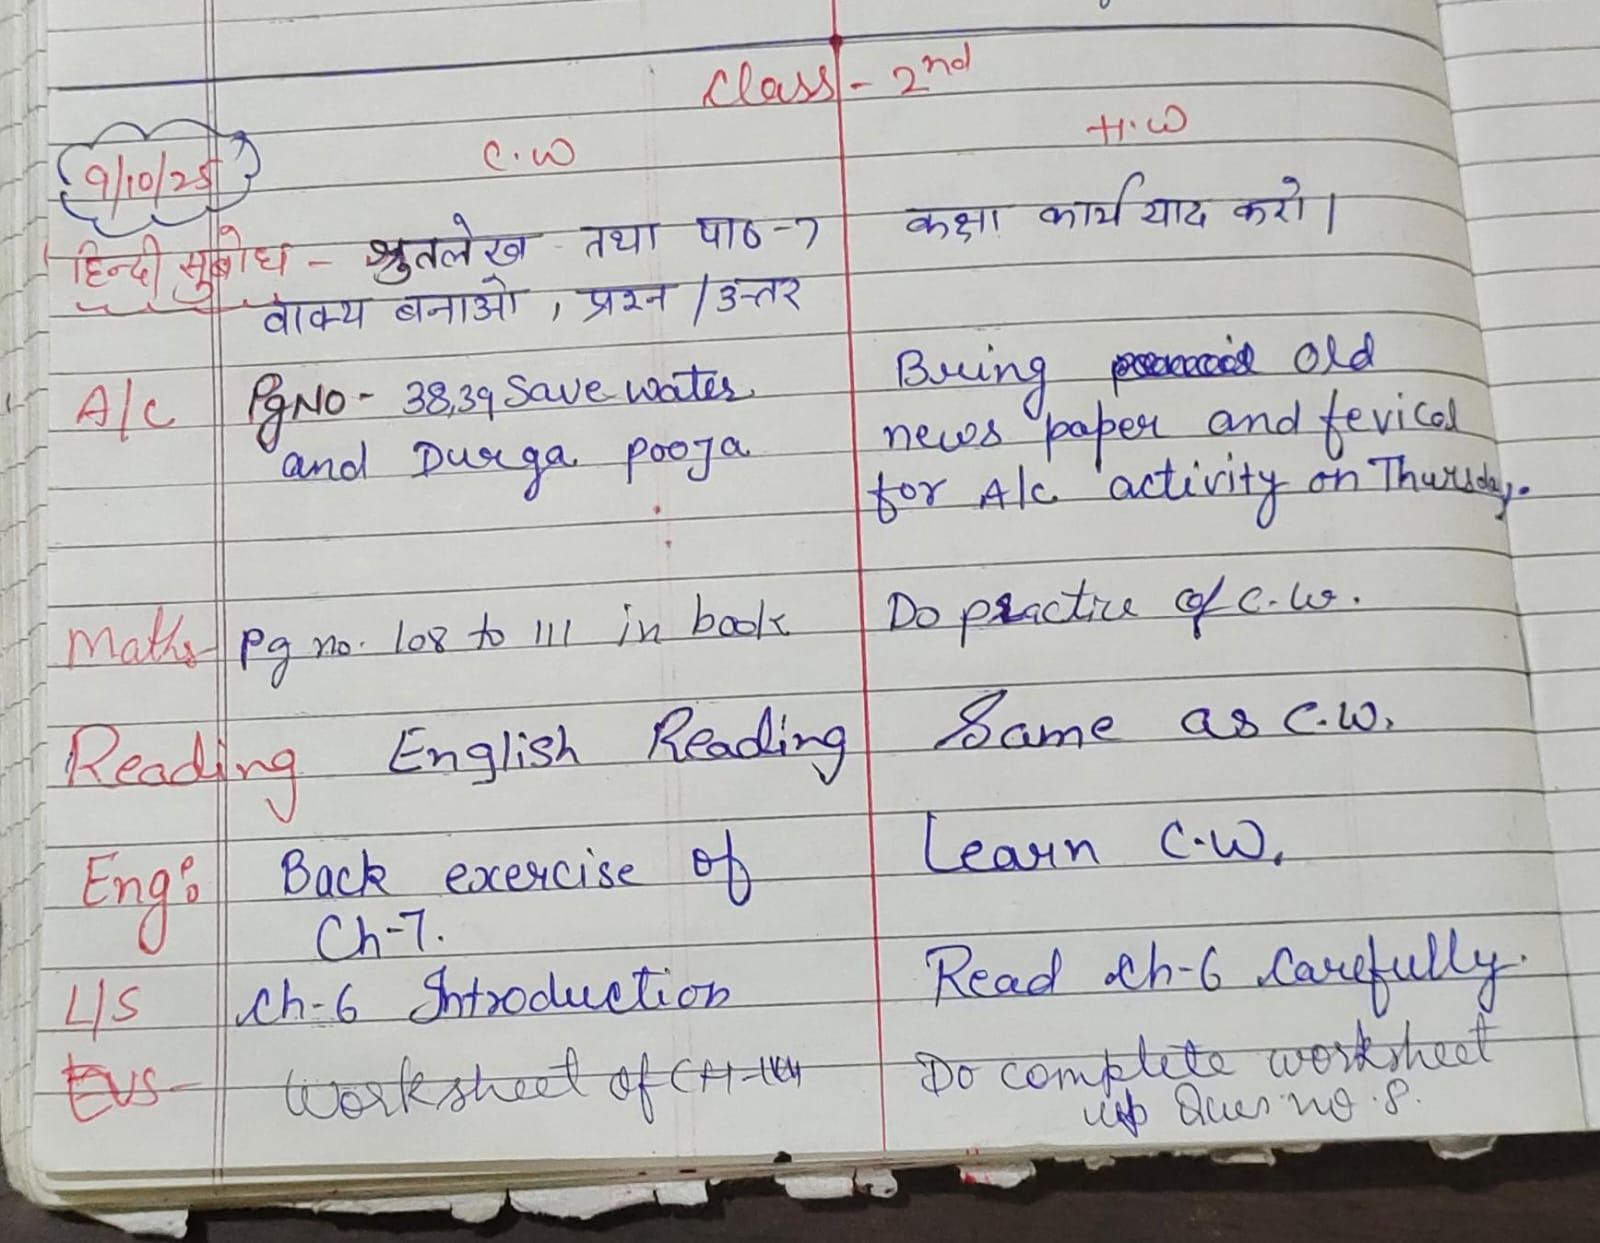 Class - 2nd
9/10/25 C.W H.W
हिन्दी सुबोध - श्रुतलेख तथा पाठ-7 कक्षा कार्य याद करो।
वाक्य बनाओ, प्रश्न/उत्तर
A/c Pg No - 38,39 Save water Bring Old
and Durga pooja news paper and fevical
for A/c activity on Thursday.
Maths Pg no. 108 to 111 in book Do practice of C.W.
Reading English Reading Same as C.W.
Eng: Back exercise of Learn C.W.
Ch-7.
L/S Ch-6 Introduction Read Ch-6 Carefully.
EVS - Worksheet of CH- Do complete worksheet
Ques no. 8.